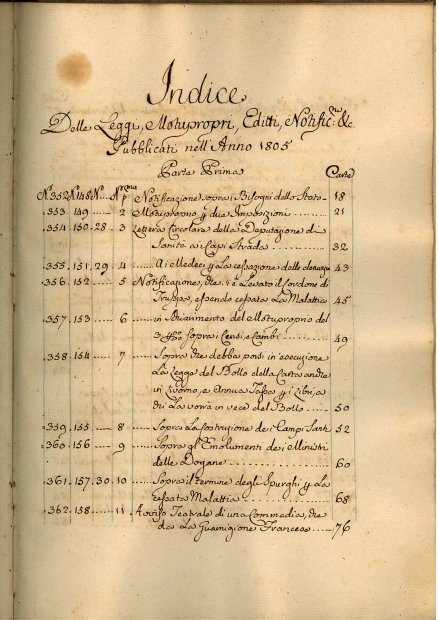 Indice
Delle Leggi, Motupropri, Editti, Notific:ni &c.
Pubblicati nell'Anno 1805
Parte Prima Carte
No. 352 148 No. No. pma Notificazione sopra i Bisogni dello Stato 18
353. 149 2 Motuproprio p due Imposizioni 21
354. 150. 28. 3 Lettera Circolare della Deputazione di
Sanità ai Capi Strada 32
355. 151. 29. 4 Ai Medeci p La cessazione delle 43
356. 152 5 Notificazione, che si è Levato il Cordone di
Truppa, essendo cessata La Malattia 45
357. 153 6 in del Motuproprio del
sopra i Censi, e Cambi 49
358. 154 7 Sopra che debba porsi in esecuzione
La Legge del Bollo della Carta anche
in Livorno, e Annua Tassa p i Libri, a
di La vorrà in vece del Bollo 50
359. 155 8 Sopra La costruzione dei Campi Santi 52
360. 156 9 Sopra gl'Emolumenti dei Ministri
delle Dogane 60
361. 157. 30. 10 Sopra il termine degli Spurghi p La
cessata Malattia 68
362. 158 11 Avviso Teatrale di una Commedia, che
da La Guarnigione Francese 76